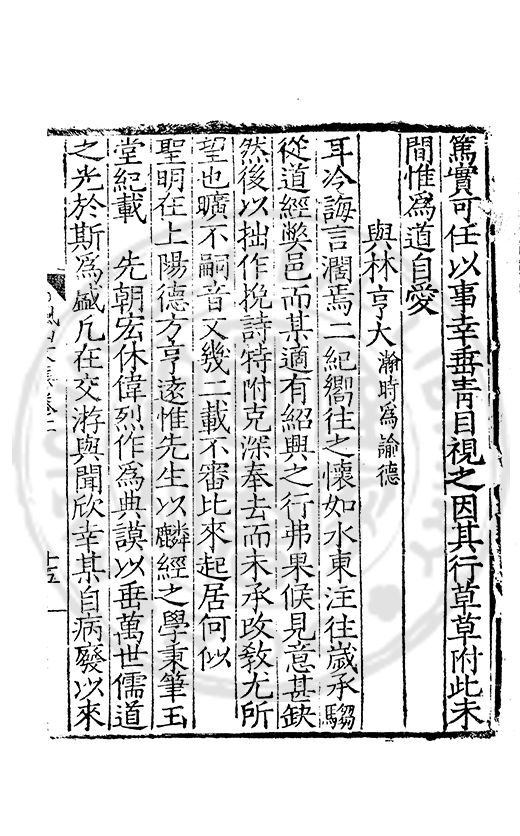 篤實可任以事幸垂青目視之因其行草草附此未
間惟爲道自愛
與林亨大瀚時爲諭德
耳冷誨言濶焉二紀嚮往之懷如水東注往歲承騶
從道經獘邑而某適有紹興之行弗果候見意甚缺
然後以拙作挽詩特附克深奉去而未承改敎尤所
望也曠不嗣音又幾二載不審比來起居何似
聖明在上陽德方亨遠惟先生以麟經之學秉筆玉
堂紀載　先朝宏休偉烈作爲典謨以垂萬世儒道
之光於斯爲盛凡在交游與聞欣幸某自病廢以來
十五